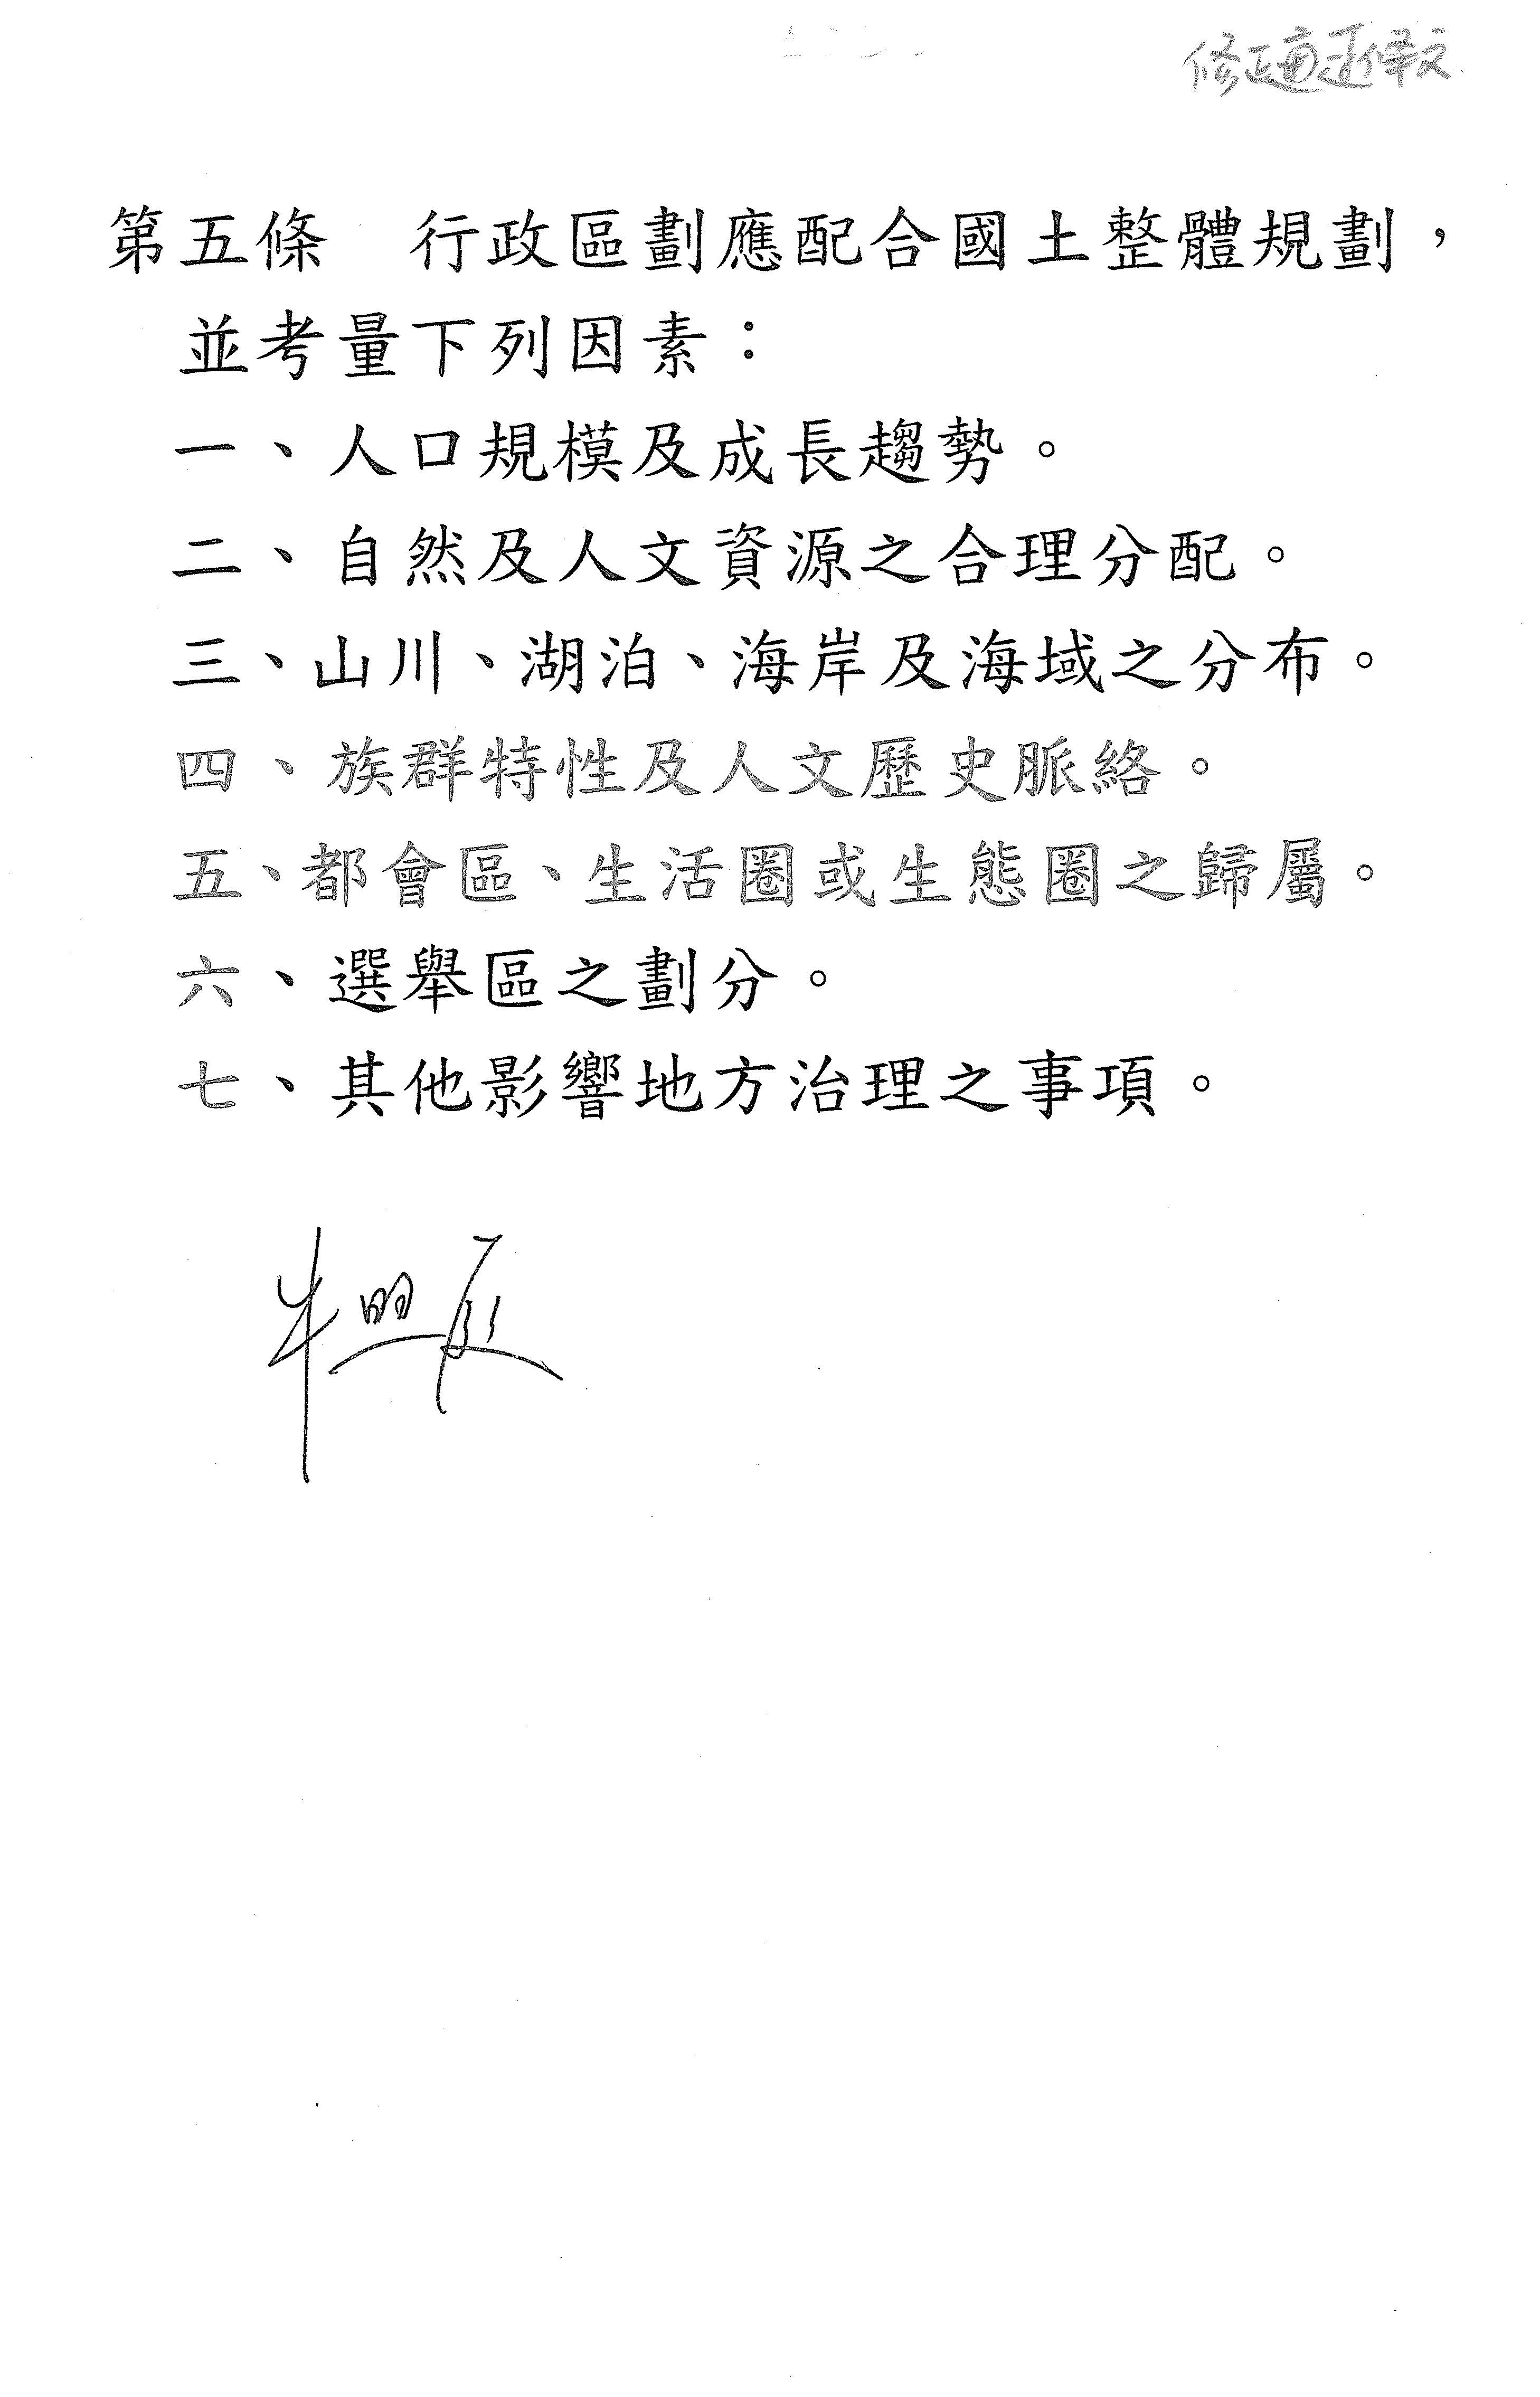 修正通過條文
第五條　行政區劃應配合國土整體規劃，
並考量下列因素：
一、人口規模及成長趨勢。
二、自然及人文資源之合理分配。
三、山川、湖泊、海岸及海域之分布。
四、族群特性及人文歷史脈絡。
五、都會區、生活圈或生態圈之歸屬。
六、選舉區之劃分。
七、其他影響地方治理之事項。